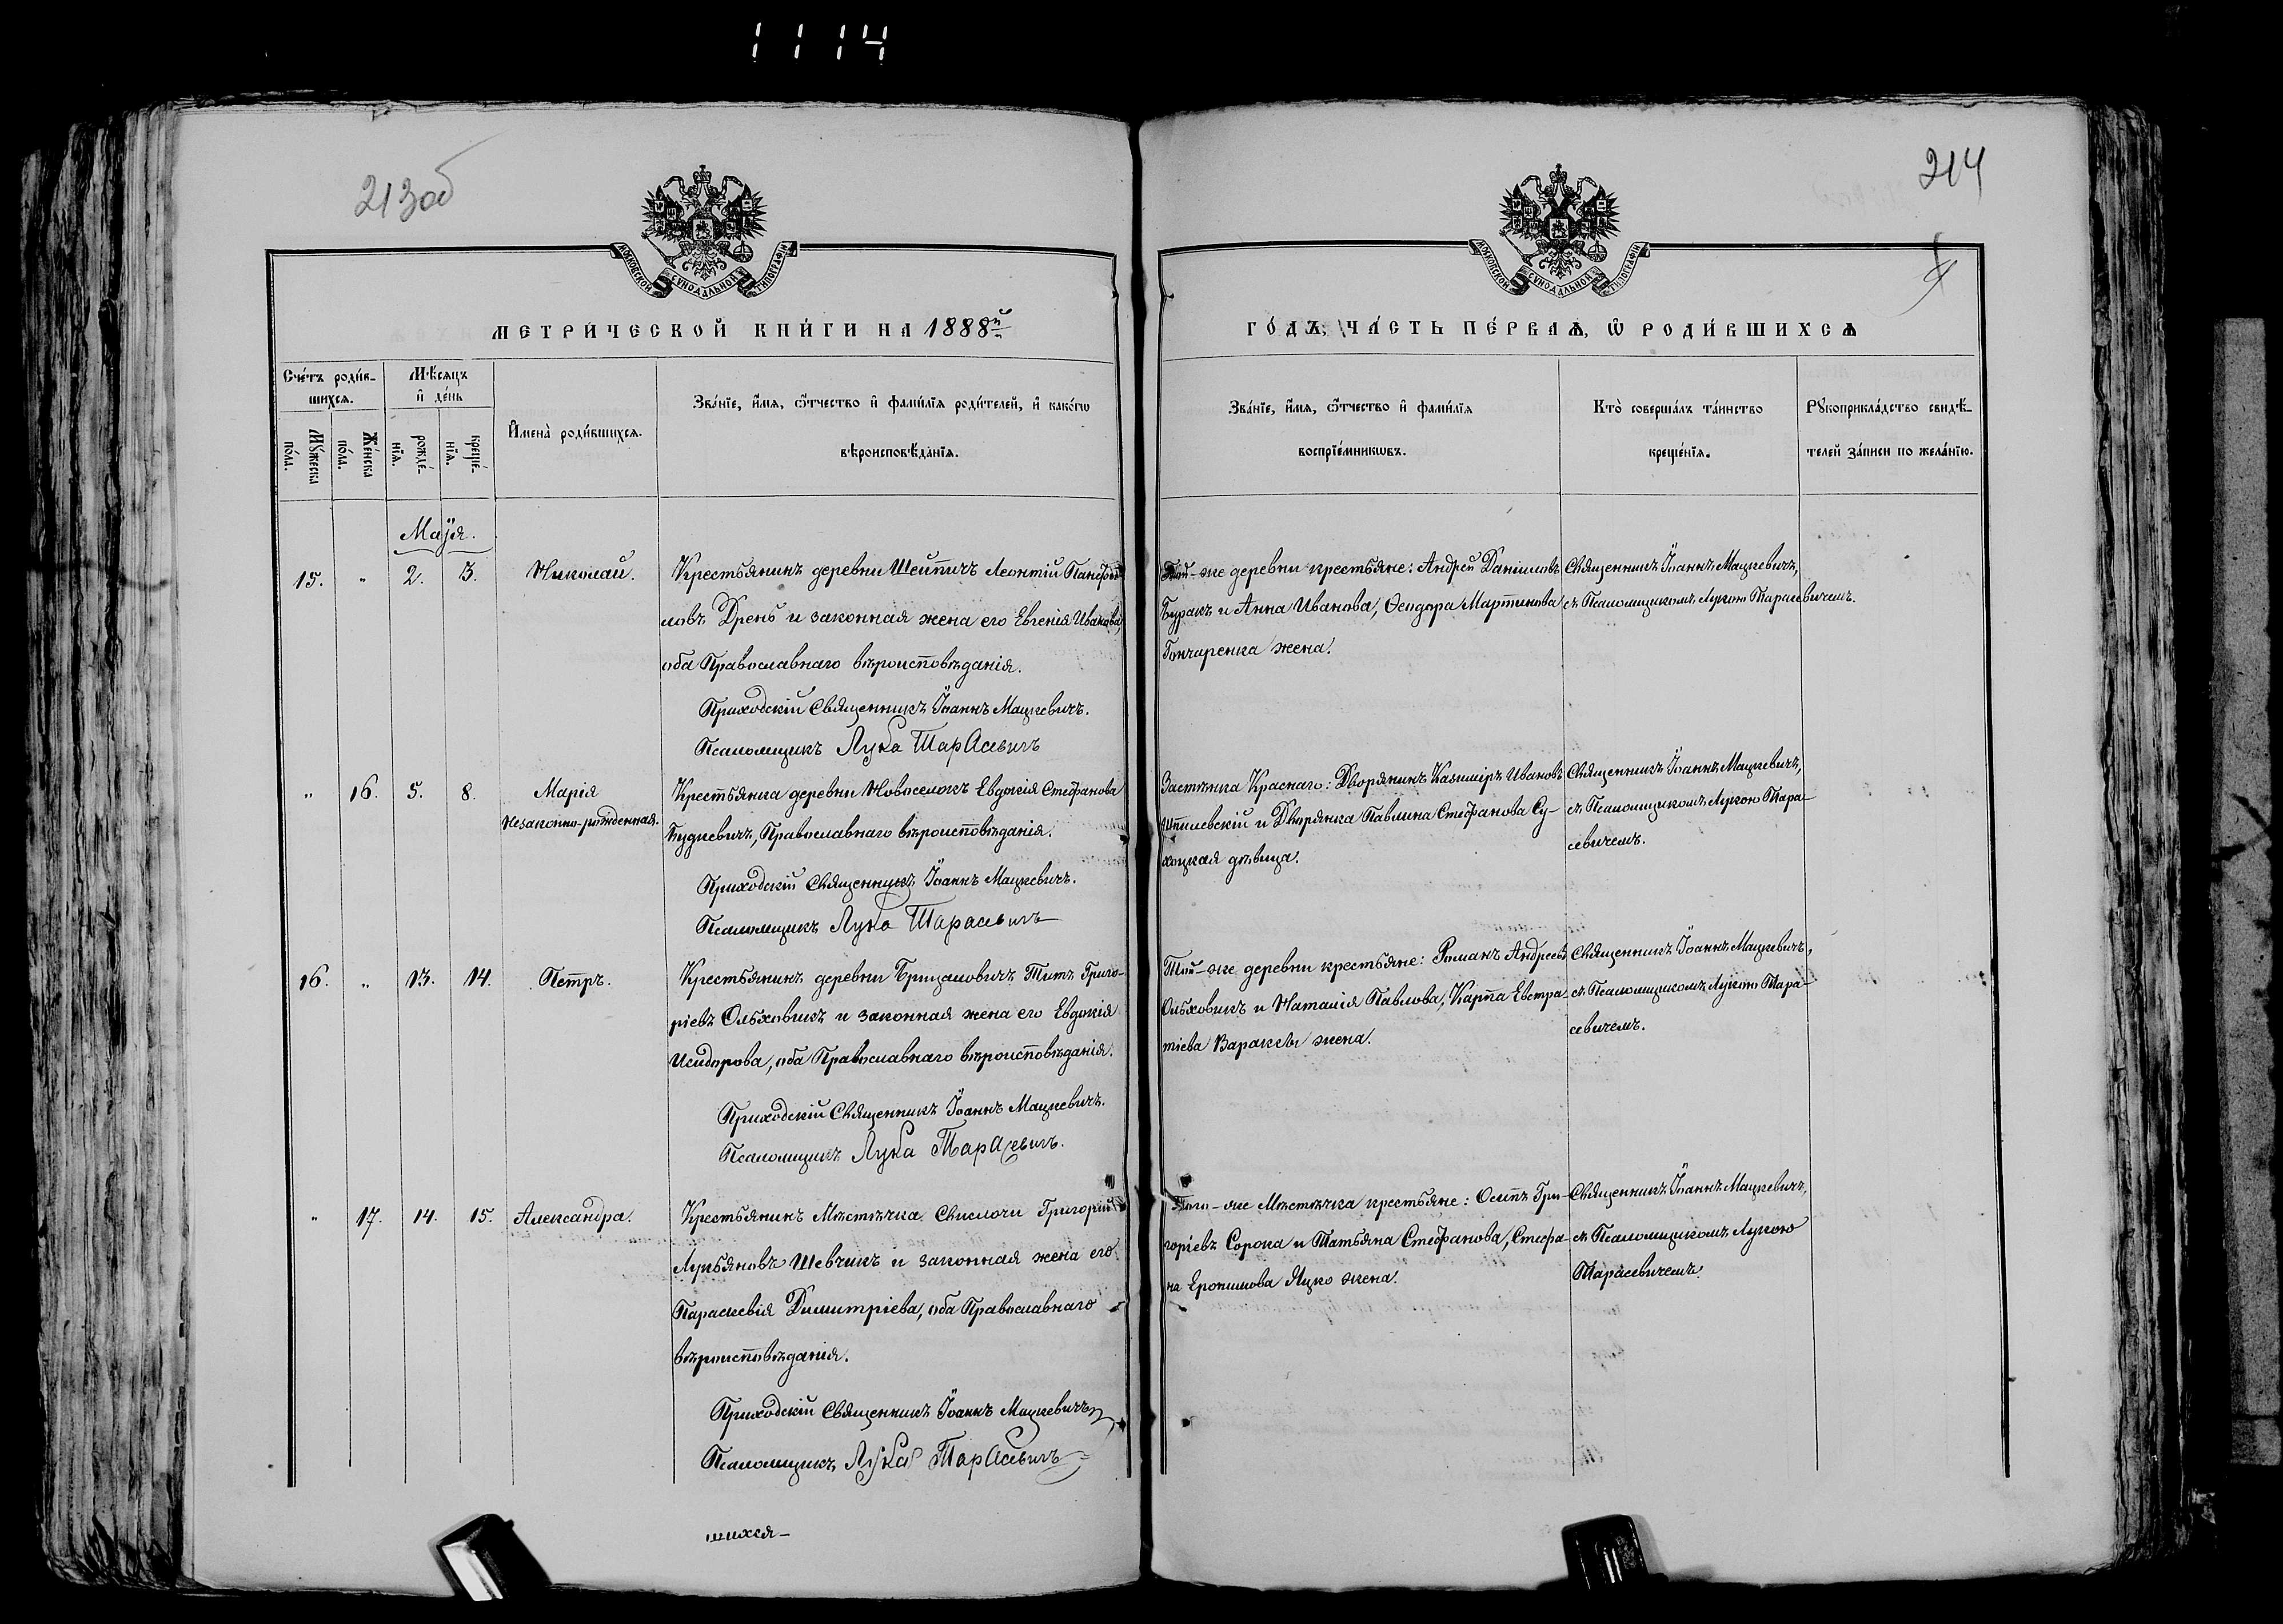 1114
213об
214
МОСКОВСКОЙ СѴНОДАЛЬНОЙ ТИПОГРАФІИ
МОСКОВСКОЙ СѴНОДАЛЬНОЙ ТИПОГРАФІИ
МЕТРИ́ЧЕСКОЙ КНИ́ГИ НА 1888й
ГО́ДЪ, ЧА́СТЬ ПЕ́РВАѦ, Ѽ РОДИ́ВШИХСѦ
Сче́тъ роди́в-
шихсѧ.
Мѣ́сѧцъ
и҆ де́нь
Мꙋ́жеска
по́ла.
Же́нска
по́ла.
рожде́-
нїѧ.
креще́-
нїѧ.
И҆мена̀ роди́вшихсѧ.
Зва́нїе, и҆́мѧ, ѻ҆́тчество и҆ фами́лїѧ роди́телей, и҆ како́гѡ
вѣроисповѣ́данїѧ.
Зва́нїе, и҆́мѧ, ѻ҆́тчество и҆ фами́лїѧ
воспрїе́мникѡвъ.
Кто̀ соверша́лъ та́инство
креще́нїѧ.
Рꙋкоприкла́дство свидѣ́-
телей за́писи по жела́нїю.
Маія.
15. " 2. 3. Николай.
Крестьянинъ деревни Шейпичъ Леонтій Панфи-
ловъ Дрень и законная жена его Евгенія Иванова,
оба Православнаго вѣроисповѣданія.
Приходскій Священникъ Іоаннъ Мацкевичъ.
Псаломщикъ Лука Тарасевичъ
Той-же деревни крестьяне: Андрей Даниловъ
Буракъ и Анна Иванова, Ѳеодора Мартинова
Гончаренка жена.
Священникъ Іоаннъ Мацкевичъ,
съ Псаломщикомъ Лукою Тарасевичемъ.
" 16. 5. 8. Марія
незаконно-рожденная.
Крестьянка деревни Новоселокъ Евдокія Стефанова
Будкевичъ, Православнаго вѣроисповѣданія.
Приходскій Священникъ Іоаннъ Мацкевичъ.
Псаломщикъ Лука Тарасевичъ
Застѣнка Краснаго: Дворянинъ Казиміръ Ивановъ
Шпилевскій и Дворянка Павлина Стефанова Су-
хоцкая дѣвица.
Священникъ Іоаннъ Мацкевичъ,
съ Псаломщикомъ Лукою Тара-
севичемъ.
16. " 13. 14. Петръ.
Крестьянинъ деревни Брицаловичъ Титъ Григо-
ріевъ Ольховикъ и законная жена его Евдокія
Исидорова, оба Православнаго вѣроисповѣданія.
Приходскій Священникъ Іоаннъ Мацкевичъ.
Псаломщикъ Лука Тарасевичъ.
Той-же деревни крестьяне: Романъ Андреевъ
Ольховикъ и Наталія Павлова, Карпа Евстра-
тіева Вараксы жена.
Священникъ Іоаннъ Мацкевичъ,
съ Псаломщикомъ Лукою Тара-
севичемъ.
" 17. 14. 15. Александра.
Крестьянинъ Мѣстѣчка Свислочи Григорій
Лукьяновъ Шевчикъ и законная жена его
Параскевія Димитріева, оба Православнаго
вѣроисповѣданія.
Приходскій Священникъ Іоаннъ Мацкевичъ
Псаломщикъ Лука Тарасевичъ
Того-же Мѣстѣчка крестьяне: Осипъ Гри-
горіевъ Сорока и Татьяна Стефанова, Стефа-
на Еронимова Яцко жена.
Священникъ Іоаннъ Мацкевичъ,
съ Псаломщикомъ Лукою
Тарасевичемъ.
шихся-